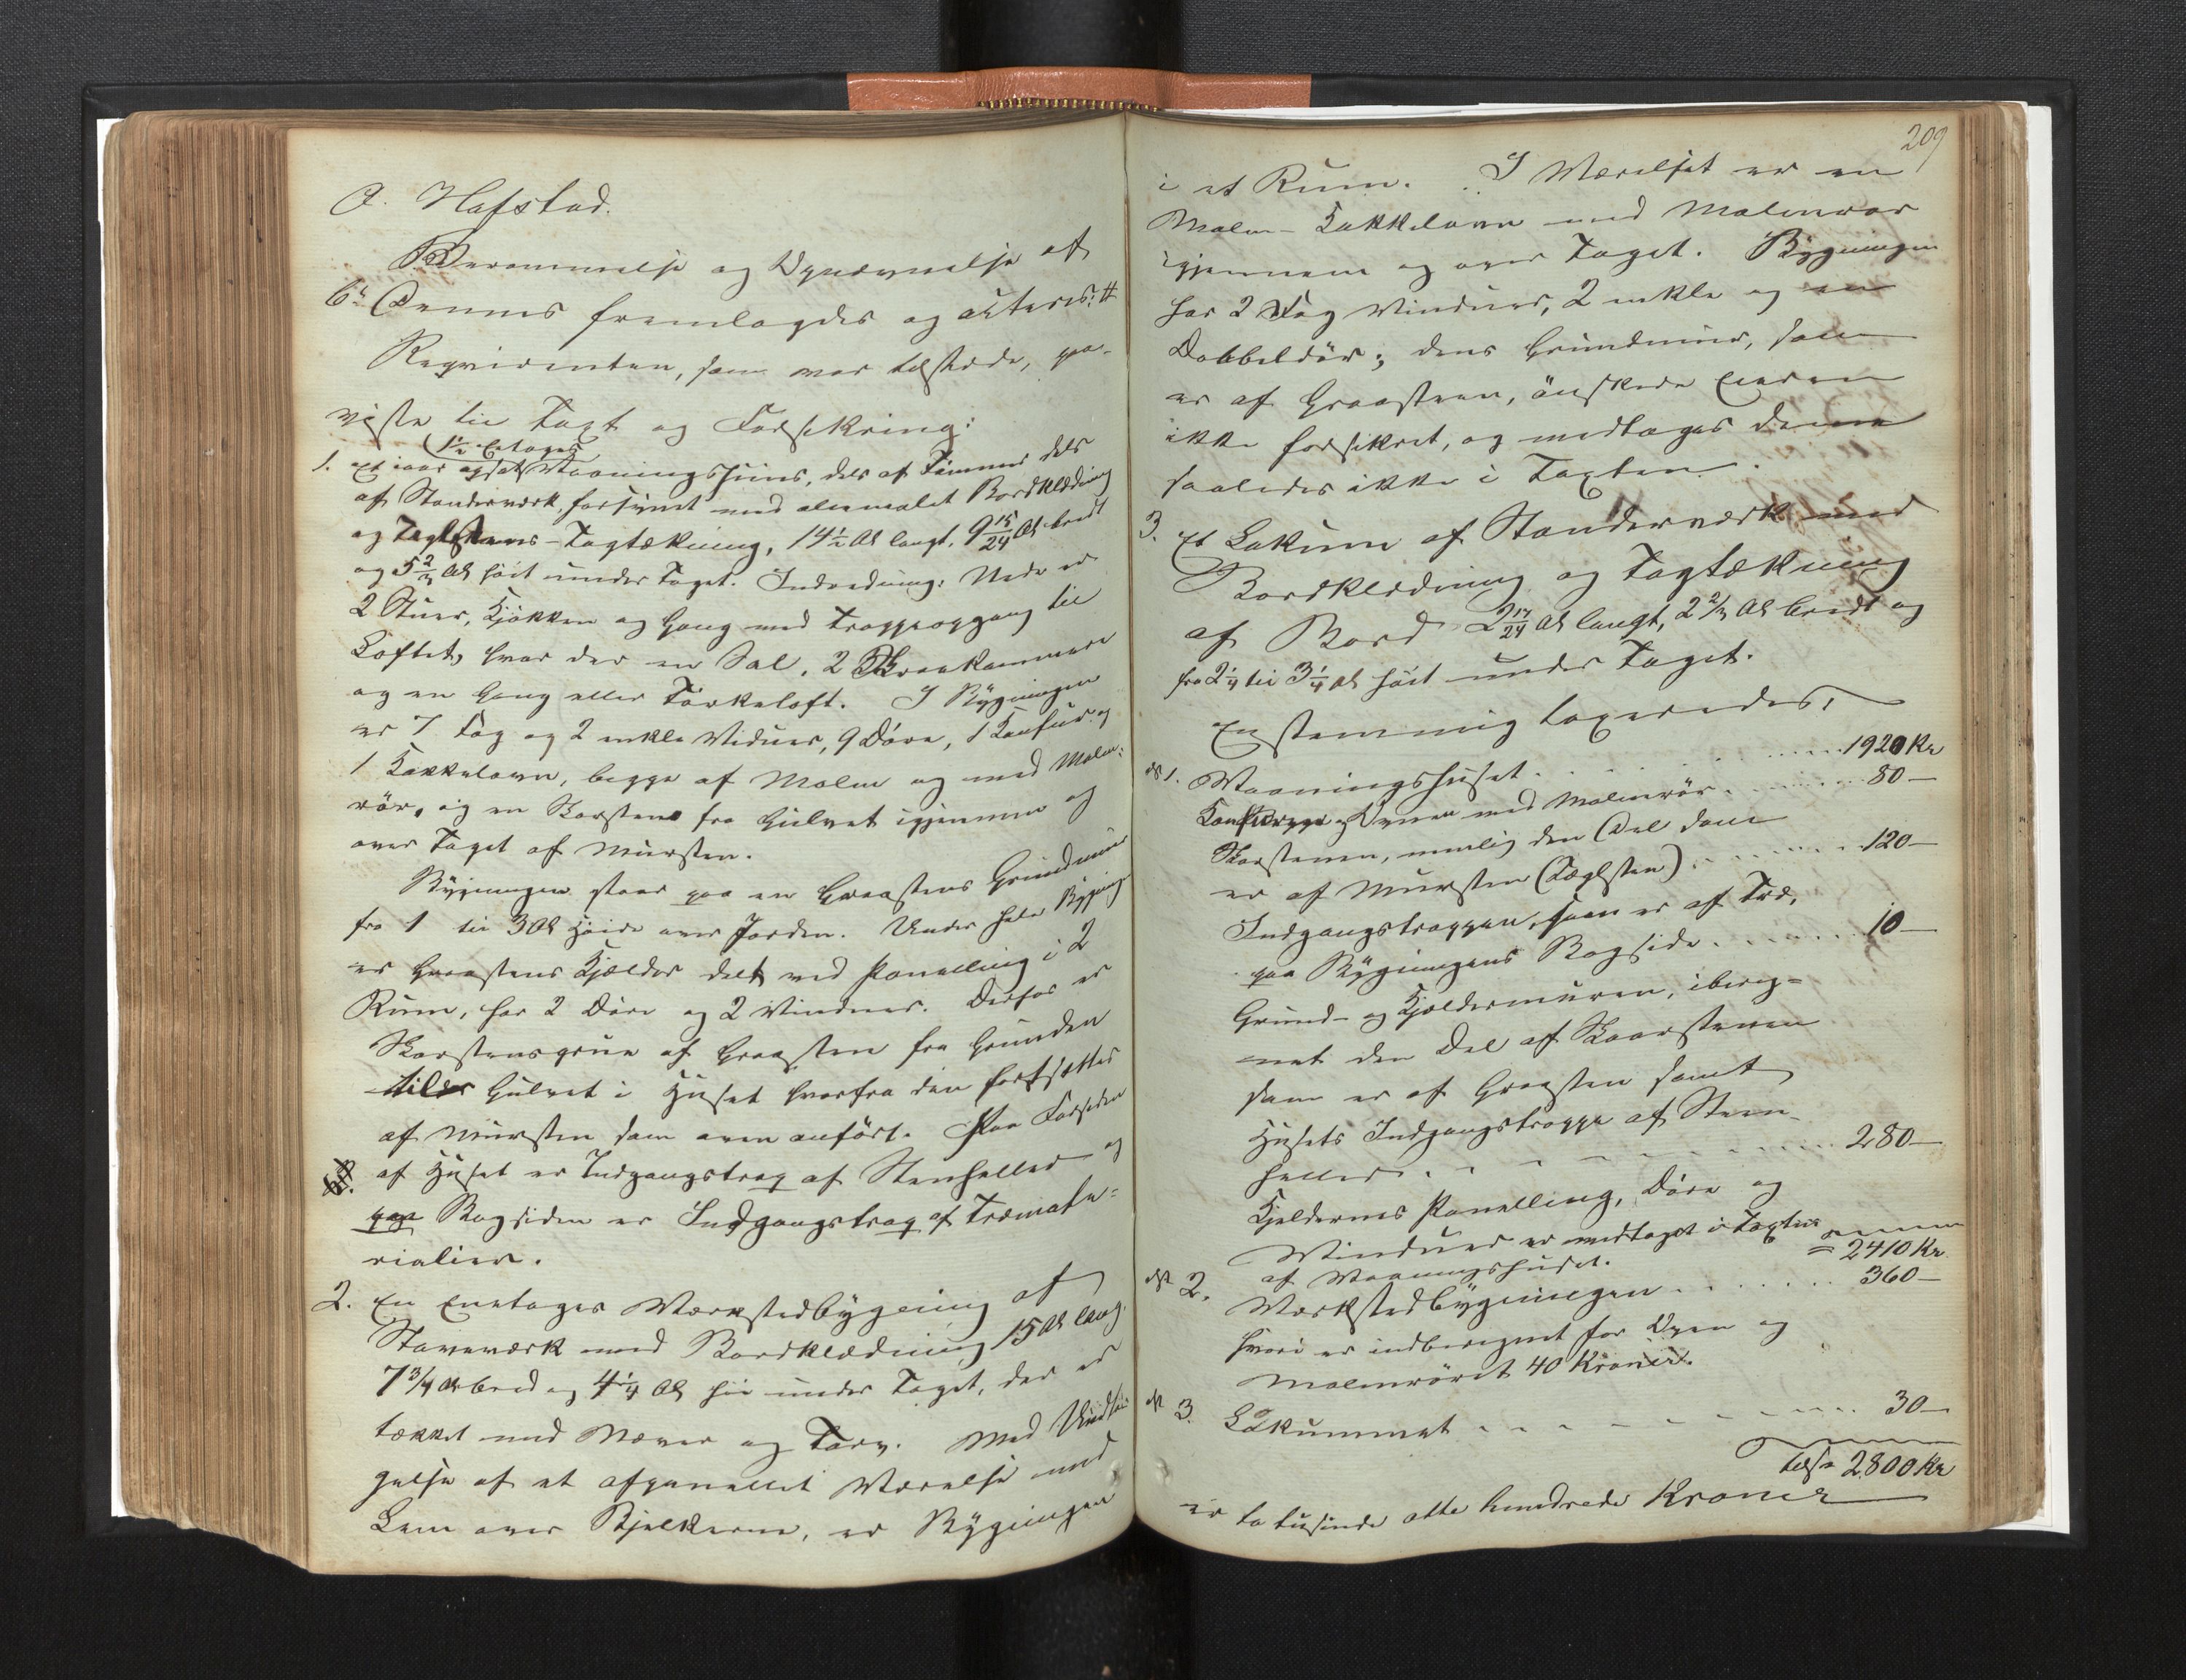 O. Hafstad.
Berammelse og Opnævnelse af
6te dennes fremlagdes og acteres: #
Reqvirenten, som var tilstede, paa-
viste til Taxt og Forsikring:
1½ Etages
1. Et iaar opsat Vaaningshuus, dels af Tømmer dels
af Standerværk, forsynet med oliemalet Bordklædning
og Taglstens-Tagtækning, 14½ Al langt, 9 15/24 Al bredt
og 5 2/3 Al høit under Taget. Indredning: Nede er
2 Stuer, Kjøkken og Gang med Trappeopgang til
Loftet, hvor der en Sal, 2 Skraakammere
og en Gang eller Tørkeloft. I Bygningen
er 7 Fag og 2 enkle Viduer, 9 Døre, 1 Komfur og
1 Kakkelovn, begge af Malm og med Malm-
rør, og en Skorsten fra Gulvet igjennem og
over Taget af Mursten.
Bygningen staar paa en Graastens Grundmur
fra 1 til 3 Al Høide over Jorden. Under hele Bygning
er Graastens Kjælder delt ved Panelling i 2
Rum, har 2 Døre og 2 Vinduer. Derfor er
Skorstensgrue af Graasten fra Grunden
til Gulvet i Huset hvorfra den fortsættes
af Mursten som oven anført. Paa Forsiden
af Huset er Indgangstrap af Stenheller og
paa Bagsiden er Indgangstrap af Træmate-
rialier.
2. En Eenetages Værkstedbygning af
Staveværk med Bordklædning 15 Al lang,
7 3/4 Al bred og 4 1/4 Al høi under Taget, der er
tækket med Næver og Torv. Med Undta-
gelse af et afpanellet Værelse med
Lem over Bjelkerne, er Bygningen
209
i et Rum. I Værelset er en
Malm-Kakkelovn med Malmrør
igjennem og over Taget. Bygningen
har 2 Fag Vinduer, 2 enkle og en
Dobbeldør; dens Grundmur, som
er af Graasteen, ønskede Eieren
ikke forsikret, og medtages denne
saaledes ikke i Taxten.
3. Et Lokum af Standerværk med
Bordklædning og Tagtækning
af Bord 2 17/24 Al langt, 2 2/3 Al bredt og
fra 2 1/4 til 3 1/4 Al høit under Taget.
Enstemmig taxeredes:
No 1. Vaaningshuset . . . . . 1920 Kr
Komfuret og Ovnen med Malmrør . . . . 80 —
Skorstenen, nemlig den Del som
er af Mursten (Teglsten) . . . . . 120 —
Indgangstrappen, som er af Træ,
paa Bygningens Bagside . . . . . 10 —
Grund- og Kjældermuren, ibereg-
net den Del af Skorstenen
som er af Graasten samt
Husets Indgangstrappe af Steen-
heller . . . . . 280 —
Kjelderens Panelling, Døre og
Vinduer er medtaget i Taxten
af Vaaningshuset. = 2410 Kr
No 2. Værkstedbygningen . . . . . 360 —
hvori er indberegnet for Ovn og
Malmrøret 40 Kroner.
No 3. Lokummet . . . . . 30 —
tils. 2800 Kr
er to tusinde otte hundrede Kroner